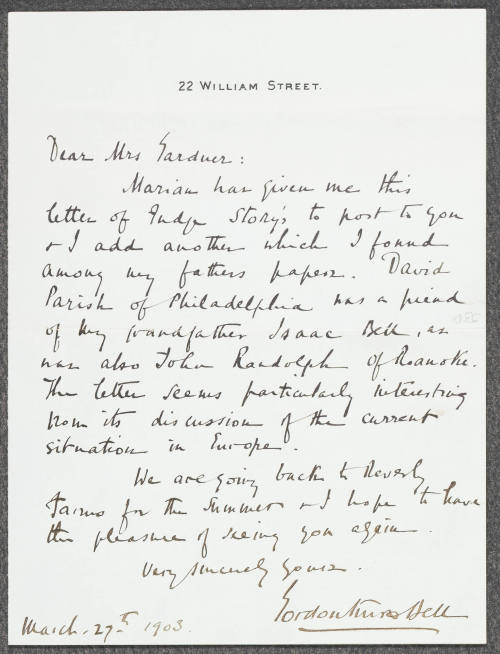 22 WILLIAM STREET.
Dear Mrs Gardner:
Marian has given me this
letter of Judge Story's to post to you
& I add another which I found
among my fathers papers. David
Parish of Philadelphia was a friend
of my grandfather Isaac Bell, as
was also John Randolph of Roanoke.
The letter seems particularly interesting
from its discussion of the current
situation in Europe.
We are going back to Beverly
Farms for the summer & I hope to have
the pleasure of seeing you again.
Very sincerely yours.
Gordon Bell
March. 27th 1903.